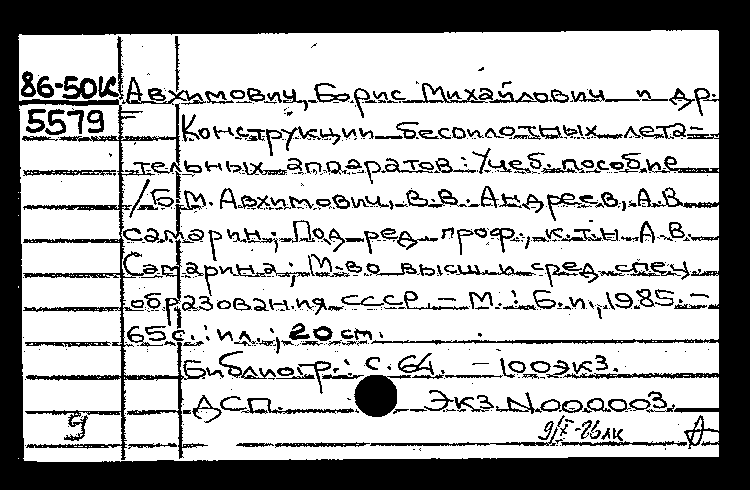 86-50К Авхимович, Борис Михайлович и др.
5579 Конструкции беспилотных лета-
тельных аппаратов: Учеб. пособие
/Б.М. Авхимович, В.В. Андреев, А.В.
Самарин; Под ред. проф., к.т.н А.В.
Самарина; М-во высш. и сред. спец.
образования СССР. - М.: Б.и., 1985. -
65 с.: ил.; 20 cm.
Библиогр.: с. 64. - 100 экз.
ДСП. Экз. N 000003.
9